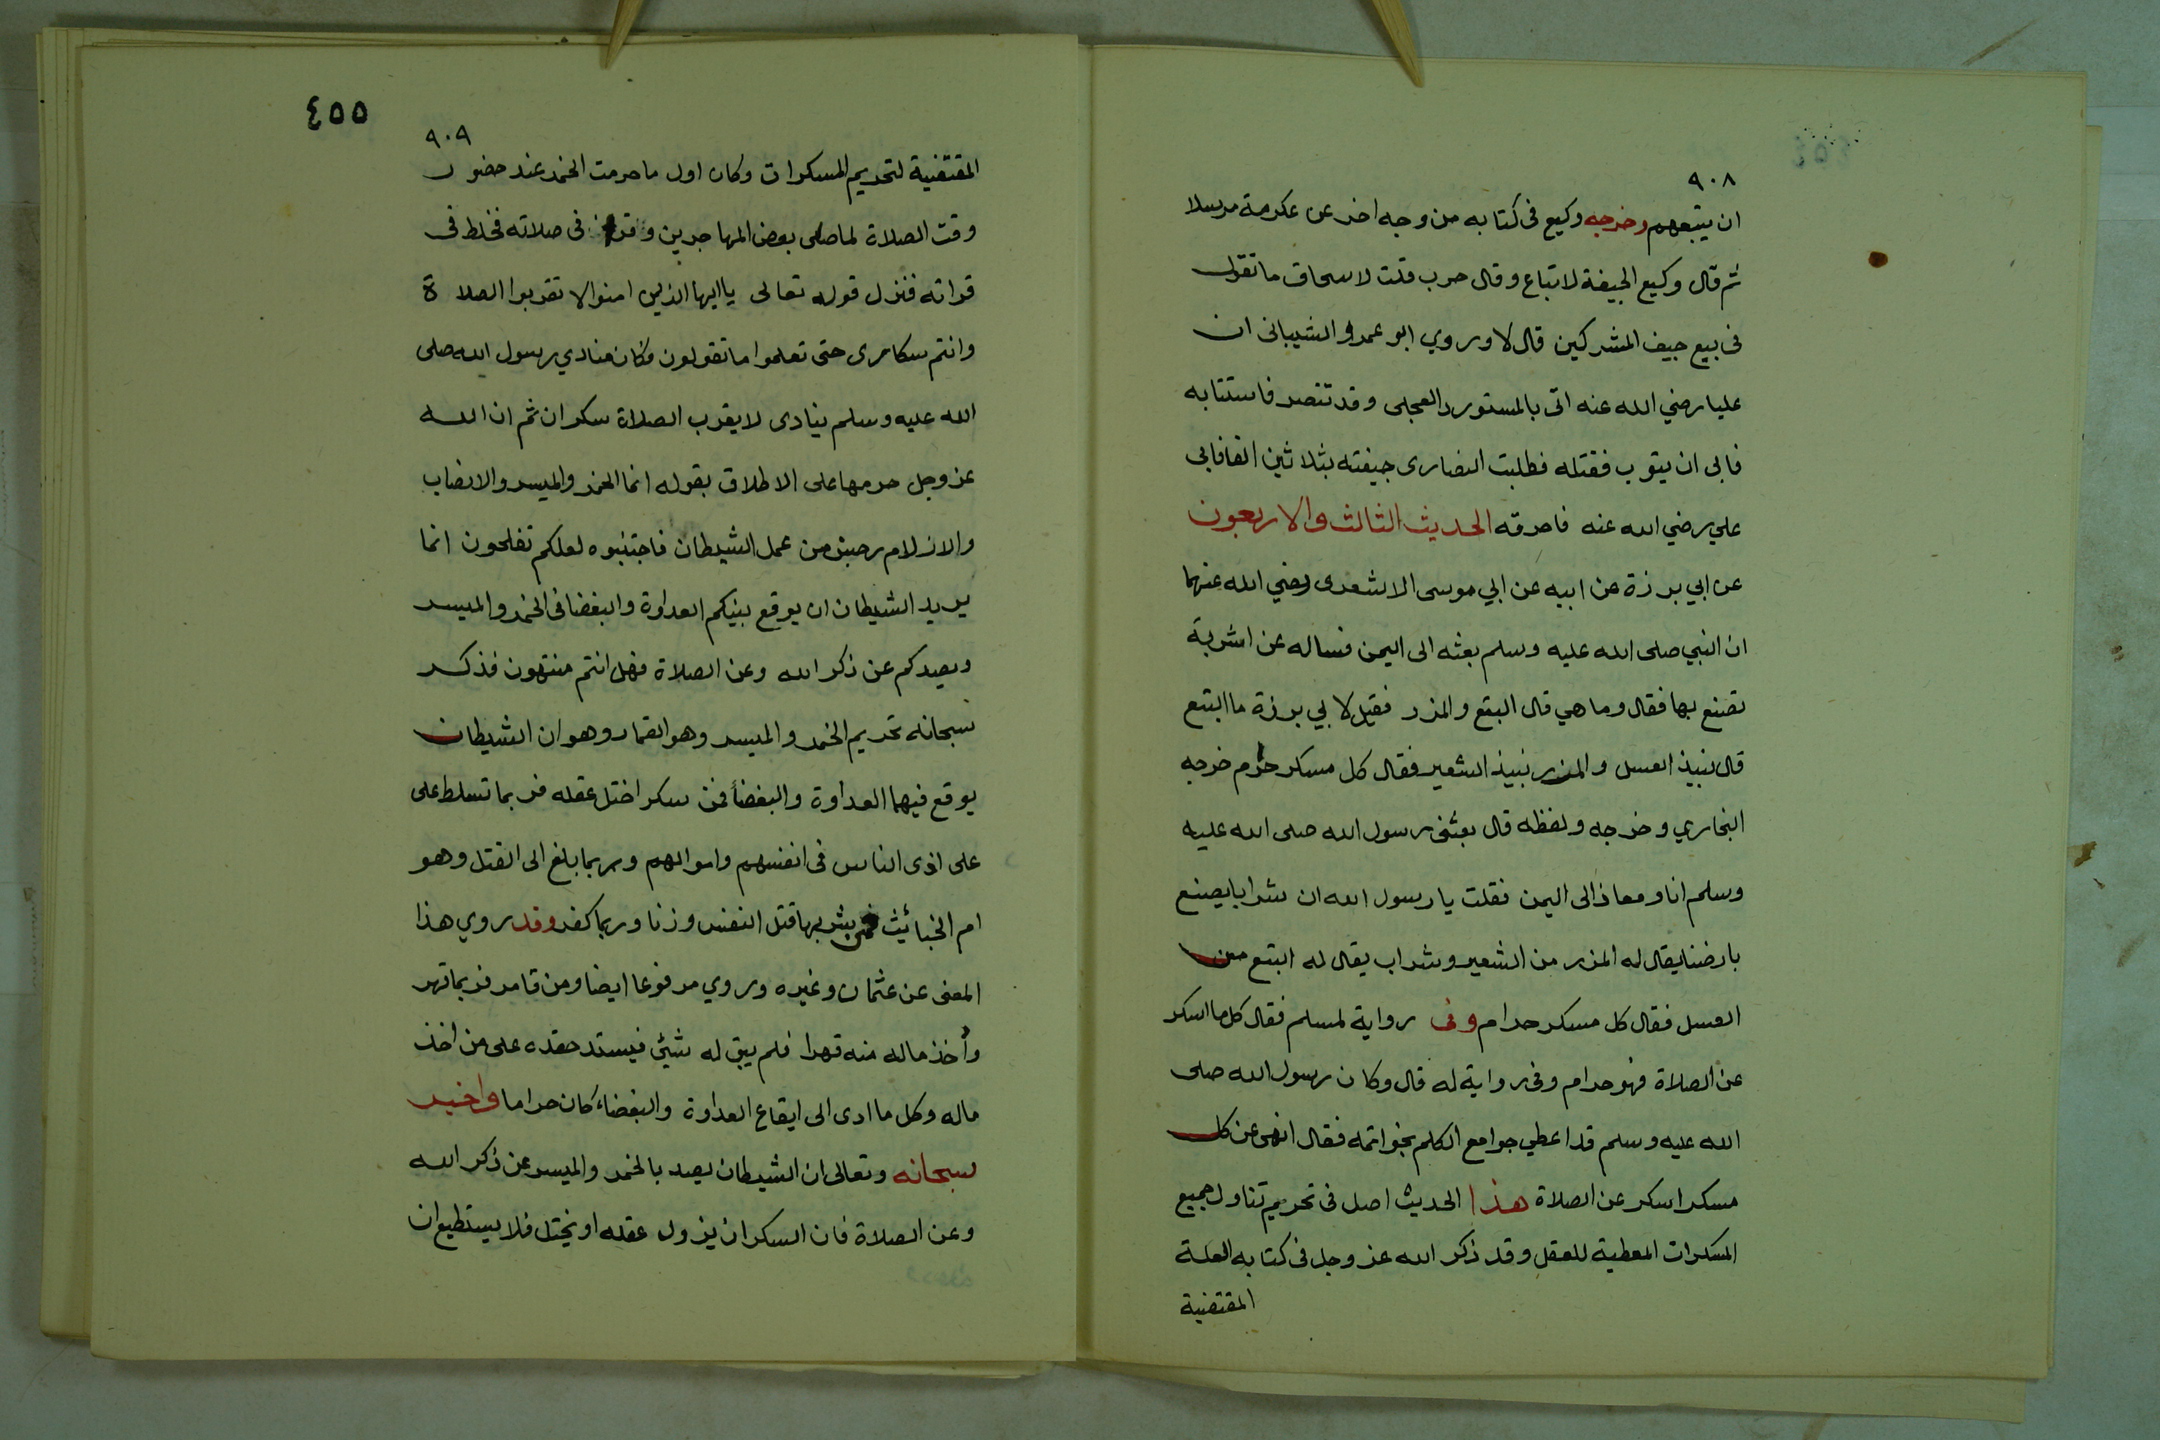 ٩٠٨
ان يتبعهم وخرجه وكيع فى كتابه من وجه اخر عن عكرمة مرسلا
ثم قال وكيع الجيفة لا تباع وقال حرب قلت لاسحاق ما تقول
فى بيع جيف المشركين قال لا وروي ابو عمرو الشيبانى ان
عليا رضي الله عنه اتى بالمستورد العجلى وقد تنصر فاستتابه
فابى ان يتوب فقتله فطلبت النصارى جيفته بثلاثين الفا فابى
علي رضي الله عنه فاحرقه الحديث الثالث والاربعون
عن ابي برزة عن ابيه عن ابي موسى الاشعرى رضي الله عنهما
ان النبي صلى الله عليه وسلم بعثه الى اليمن فساله عن اشربة
تصنع بها فقال وما هي قال البتع والمزر فقيل لابي برزة ما البتع
قال نبيذ العسل والمزر نبيذ الشعير فقال كل مسكر حرام خرجه
البخاري وخرجه ولفظه قال بعثنى رسول الله صلى الله عليه
وسلم انا ومعاذ الى اليمن فقلت يا رسول الله ان شرابا يصنع
بارضنا يقال له المزر من الشعير وشراب يقال له البتع من
العسل فقال كل مسكر حرام وفى رواية لمسلم فقال كل ما اسكر
عن الصلاة فهو حرام وفى رواية له قال وكان رسول الله صلى
الله عليه وسلم قد اعطي جوامع الكلم بخواتمه فقال انهى عن كل
مسكر اسكر عن الصلاة هذا الحديث اصل فى تحريم تناول جميع
المسكرات المعطية للعقل وقد ذكر الله عز وجل فى كتابه العلة
المقتضية
٤٥٥
٩٠٩
المقتضية لتحريم المسكرات وكان اول ما حرمت الخمر عند حضور
وقت الصلاة لما صلى بعض المهاجرين وقرا فى صلاته فخلط فى
قراته فنزل قوله تعالى ياايها الذين امنوا لا تقربوا الصلاة
وانتم سكارى حتى تعلموا ما تقولون وكان منادي رسول الله صلى
الله عليه وسلم ينادى لا يقرب الصلاة سكران ثم ان الله
عز وجل حرمها على الاطلاق بقوله انما الخمر والميسر والانصاب
والازلام رجس من عمل الشيطان فاجتنبوه لعلكم تفلحون انما
يريد الشيطان ان يوقع بينكم العداوة والبغضا فى الخمر والميسر
ويصدكم عن ذكر الله وعن الصلاة فهل انتم منتهون فذكر
سبحانه تحريم الخمر والميسر وهو القمار وهو ان الشيطان
يوقع فيهما العداوة والبغضأ فمن سكر اختل عقله فربما تسلط على
على اذى الناس فى انفسهم واموالهم وربما بلغ الى القتل وهو
ام الخبائث فمن شربها قتل النفس وزنا وربما كفر وقد روي هذا
المعنى عن عثمان وغيره وروي مرفوعا ايضا ومن قامر فربما قهر
وأخذ ماله منه قهرا فلم يبق له شيئ فيشتد حقده على من اخذ
ماله وكل ما ادى الى ايقاع العداوة والبغضاء كان حراما واخبر
سبحانه وتعالى ان الشيطان يصد بالخمر والميسر عن ذكر الله
وعن الصلاة فان السكران يزول عقله او يختل فلا يستطيع ان